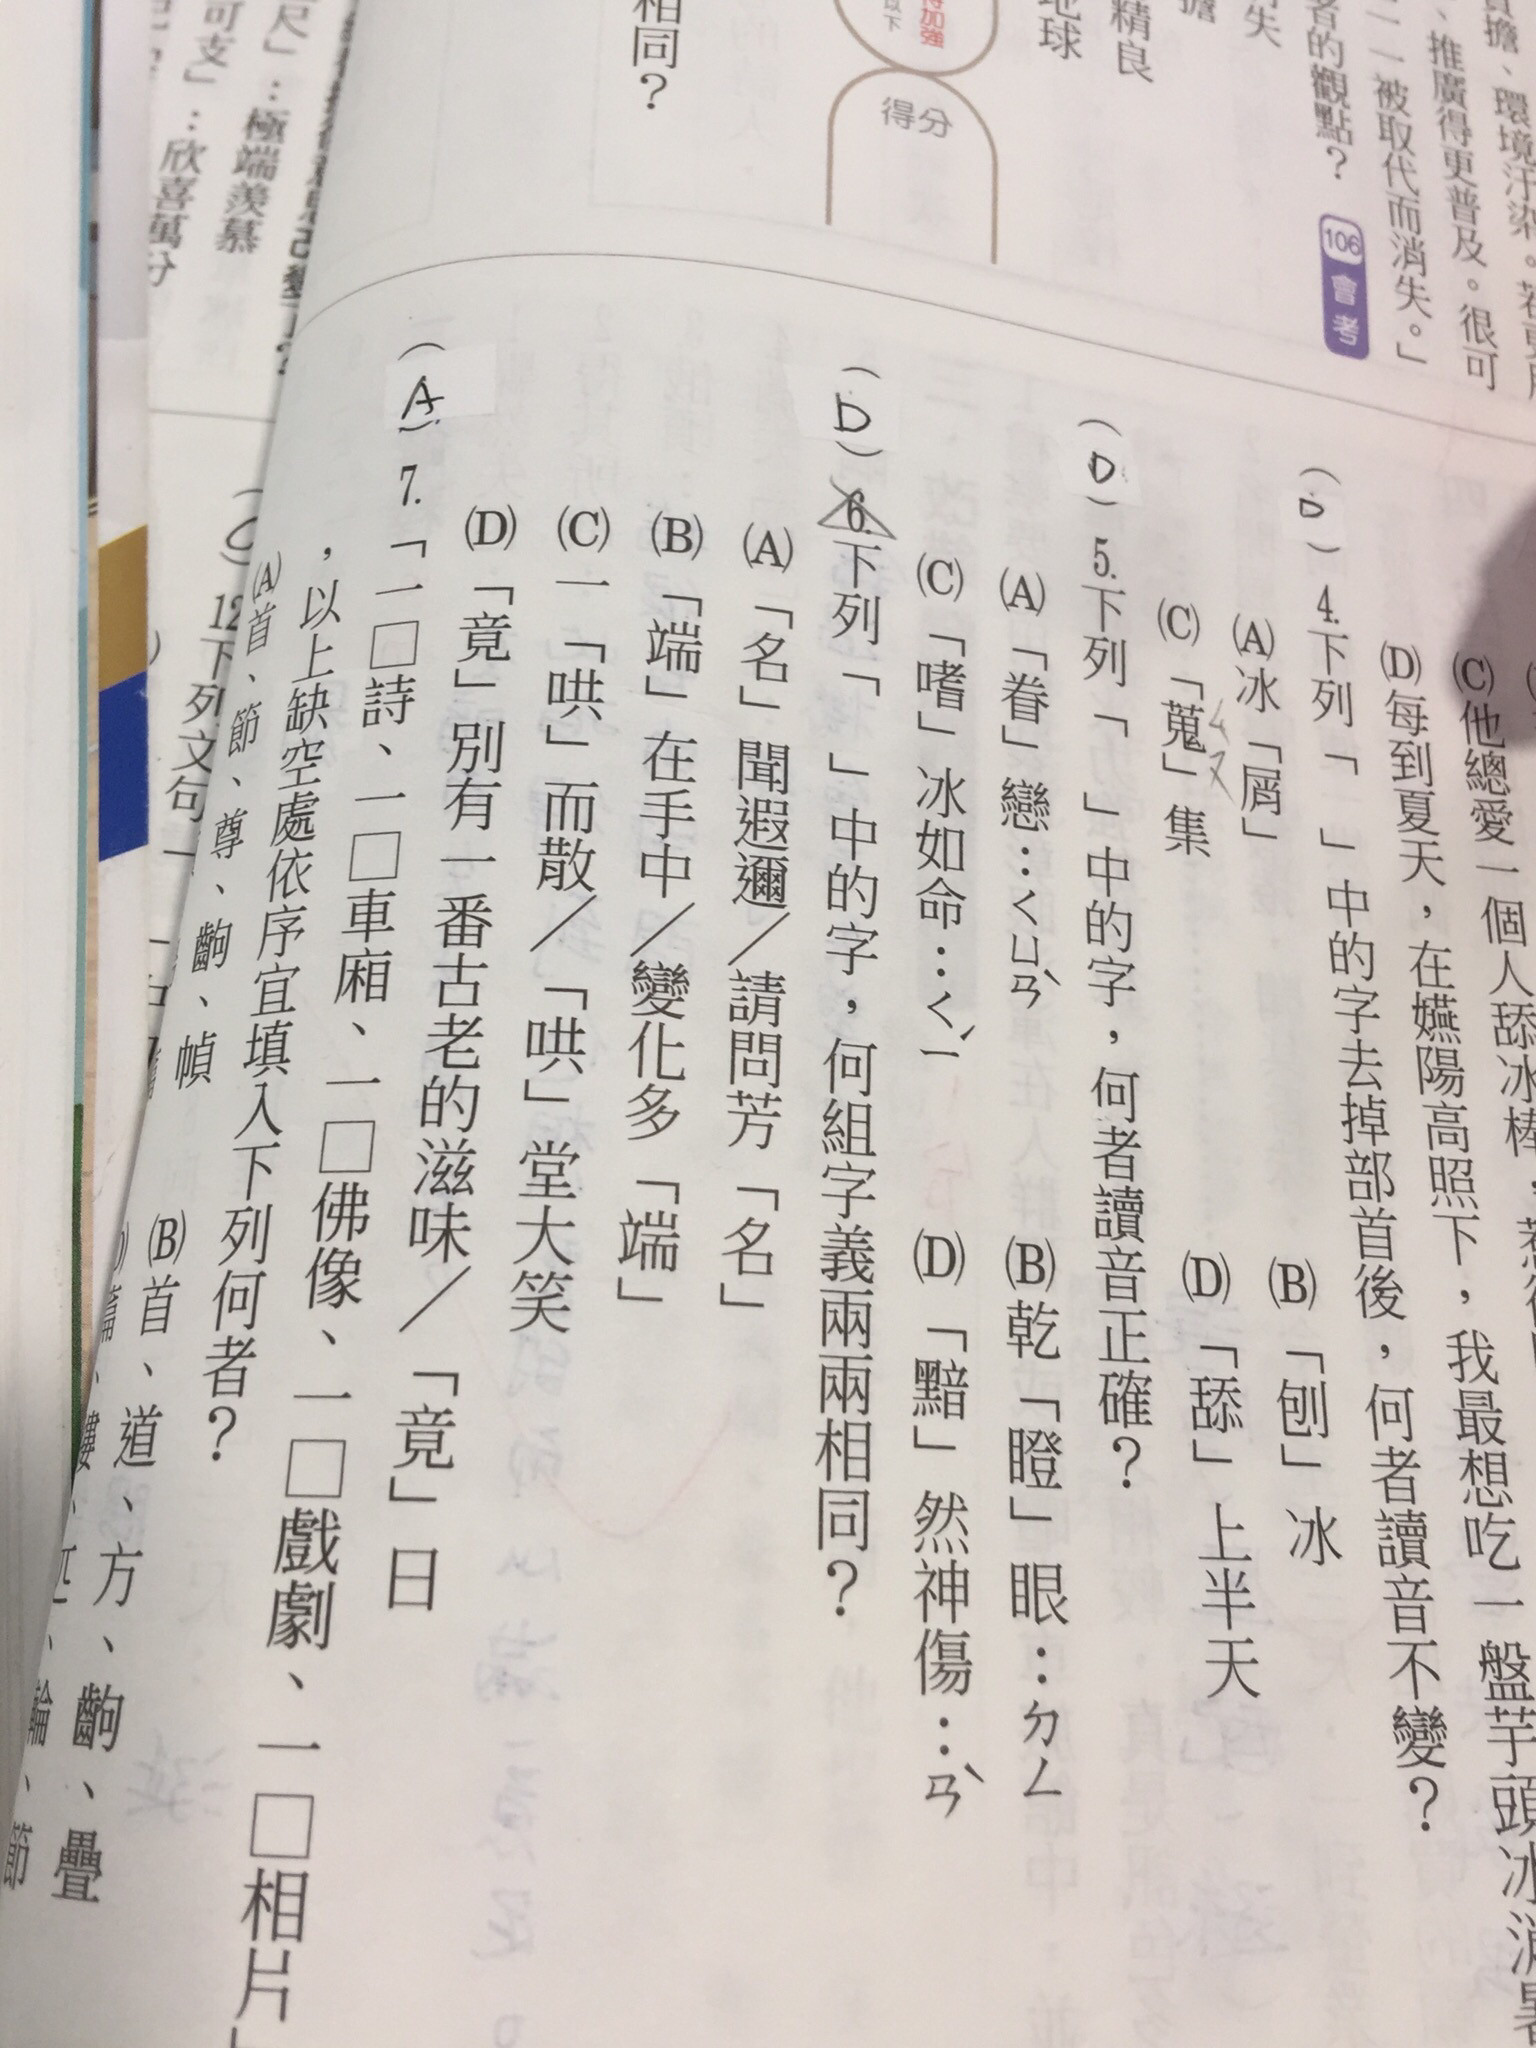 負擔、環境汙染。若更
、推廣得更普及。很可
一一被取代而消失。」
者的觀點？ 106 會考
消失
擔
精良
地球
待加強
以下
得分
相同？
(C)他總愛一個人舔冰棒，
(D)每到夏天，在嬿陽高照下，我最想吃一盤芋頭冰消暑
(D) 4.下列「 」中的字去掉部首後，何者讀音不變？
(A)冰「屑」 (B)「刨」冰
(C)「蒐」集 (D)「舔」上半天
ㄙㄡ
(D) 5.下列「 」中的字，何者讀音正確？
(A)「眷」戀：ㄑㄩㄢˋ (B)乾「瞪」眼：ㄉㄥ
(C)「嗜」冰如命：ㄑㄧˊ (D)「黯」然神傷：ㄢˋ
(D) 6.下列「 」中的字，何組字義兩兩相同？
(A)「名」聞遐邇／請問芳「名」
(B)「端」在手中／變化多「端」
(C)一「哄」而散／「哄」堂大笑
(D)「竟」別有一番古老的滋味／「竟」日
(A) 7.「一□詩、一□車廂、一□佛像、一□戲劇、一□相片」
，以上缺空處依序宜填入下列何者？
(A)首、節、尊、齣、幀 (B)首、道、方、齣、疊
篇、
節
尺」：極端羨慕
可支」：欣喜萬分
(C) 12.下列文句